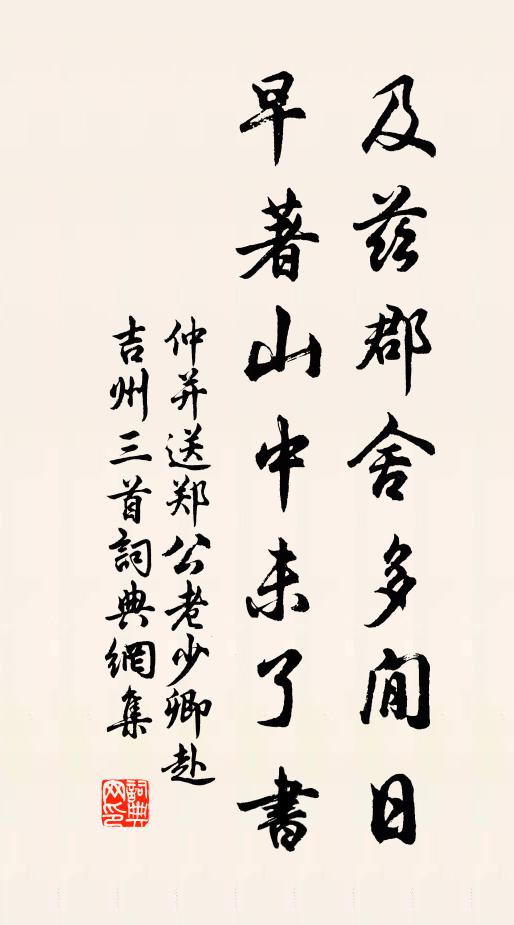 及茲郡舍多閒日
早著山中未了書
仲并送郑公老少卿赴
吉州三首詞典網集
詞典网印